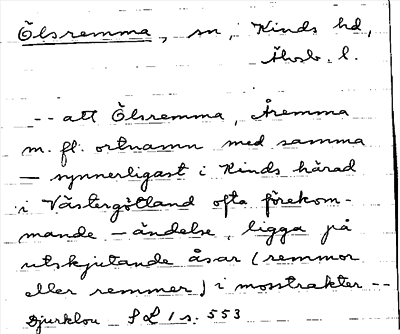 Ölsremma, sn, Kinds hd,
Älvsb. l.
-- att Ölsremma, Åremma
m. fl. ortnamn med samma
— synnerligast i Kinds härad
i Västergötland ofta förekom-
mande — ändelse, ligga på
utskjutande åsar (remmor
eller remmer) i mosstrakter --
Djurklou SL 1 s. 553